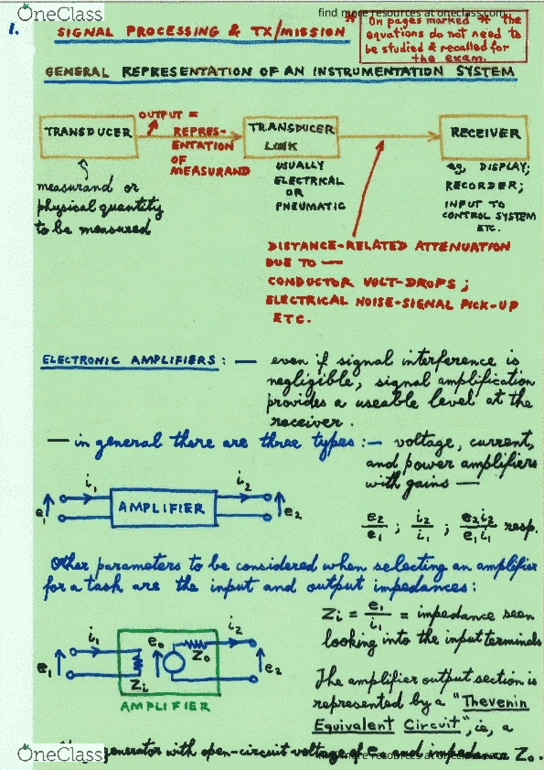 OneClass
find more resources at oneclass.com
1.
SIGNAL PROCESSING & TX/MISSION
* On pages marked * the
equations do not need to
be studied & recalled for
the exam.
GENERAL REPRESENTATION OF AN INSTRUMENTATION SYSTEM
TRANSDUCER
OUTPUT =
REPRES-
ENTATION
OF
MEASURAND
TRANSDUCER
LINK
USUALLY
ELECTRICAL
OR
PNEUMATIC
RECEIVER
eg, DISPLAY;
RECORDER;
INPUT TO
CONTROL SYSTEM
ETC.
measurand or
physical quantity
to be measured
DISTANCE-RELATED ATTENUATION
DUE TO —
CONDUCTOR VOLT-DROPS ;
ELECTRICAL NOISE-SIGNAL PICK-UP
ETC.
ELECTRONIC AMPLIFIERS : — even if signal interference is
negligible, signal amplification
provides a useable level at the
receiver.
— in general there are three types :— voltage, current,
and power amplifiers
with gains —
e1 i1 AMPLIFIER i2 e2
e2/e1 ; i2/i1 ; e2i2/e1i1 resp.
Other parameters to be considered when selecting an amplifier
for a task are the input and output impedances:
e1 i1 Zi e0 Z0 i2 e2
AMPLIFIER
Zi = e1/i1 = impedance seen
looking into the input terminals
The amplifier output section is
represented by a "Thevenin
Equivalent Circuit", ie, a
generator with open-circuit voltage of e0 and impedance Z0.
OneClass
find more resources at oneclass.com